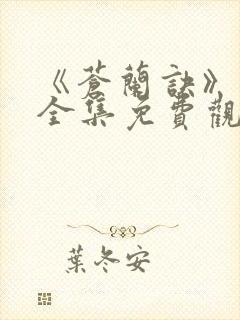 《蒼蘭訣》
全集免費觀
葉冬安